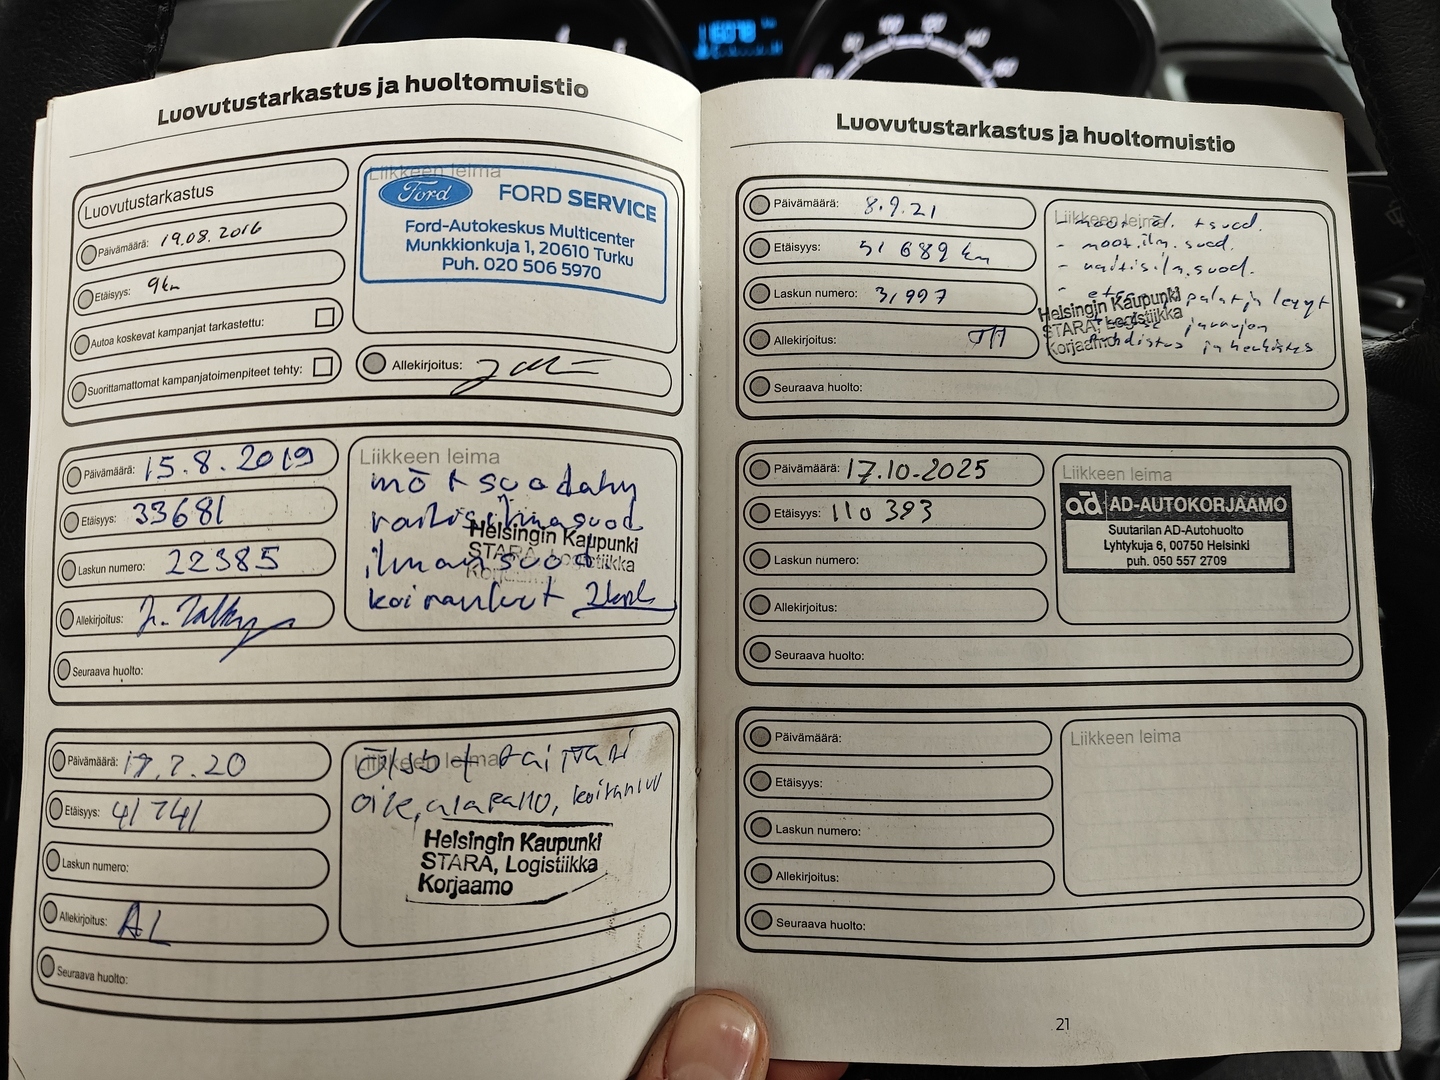 Luovutustarkastus ja huoltomuistio
Luovutustarkastus
Päivämäärä: 19.08.2016
Etäisyys: 9km
Autoa koskevat kampanjat tarkastettu:
Suorittamattomat kampanjatoimenpiteet tehty:
Liikkeen leima
Ford FORD SERVICE
Ford-Autokeskus Multicenter
Munkkionkuja 1, 20610 Turku
Puh. 020 506 5970
Allekirjoitus:
Päivämäärä: 15.8.2019
Etäisyys: 33681
Laskun numero: 22385
Allekirjoitus:
Seuraava huolto:
Liikkeen leima
raitisilmasuod
Helsingin Kaupunki
STARA, Logistiikka
Korjaamo
ilman suod.
koiranluut 2kpl
Päivämäärä: 17.7.20
Etäisyys: 41741
Laskun numero:
Allekirjoitus: AL
Seuraava huolto:
Liikkeen leima
Öljyt +
oik, alapallo, koiranluu
Helsingin Kaupunki
STARA, Logistiikka
Korjaamo
Luovutustarkastus ja huoltomuistio
Päivämäärä: 8.9.21
Etäisyys: 51 689 km
Laskun numero: 31997
Allekirjoitus: JH
Seuraava huolto:
Liikkeen leima
- moot.öl. + suod.
- moot.ilm.suod.
- raitisilm.suod.
- palat ja levyt
Helsingin Kaupunki
STARA, Logistiikka
Korjaamo
jarrujen
puhdistus ja herkistys
Päivämäärä: 17.10-2025
Etäisyys: 110 393
Laskun numero:
Allekirjoitus:
Seuraava huolto:
Liikkeen leima
ad AD-AUTOKORJAAMO
Suutarilan AD-Autohuolto
Lyhtykuja 6, 00750 Helsinki
puh. 050 557 2709
Päivämäärä:
Etäisyys:
Laskun numero:
Allekirjoitus:
Seuraava huolto:
Liikkeen leima
21